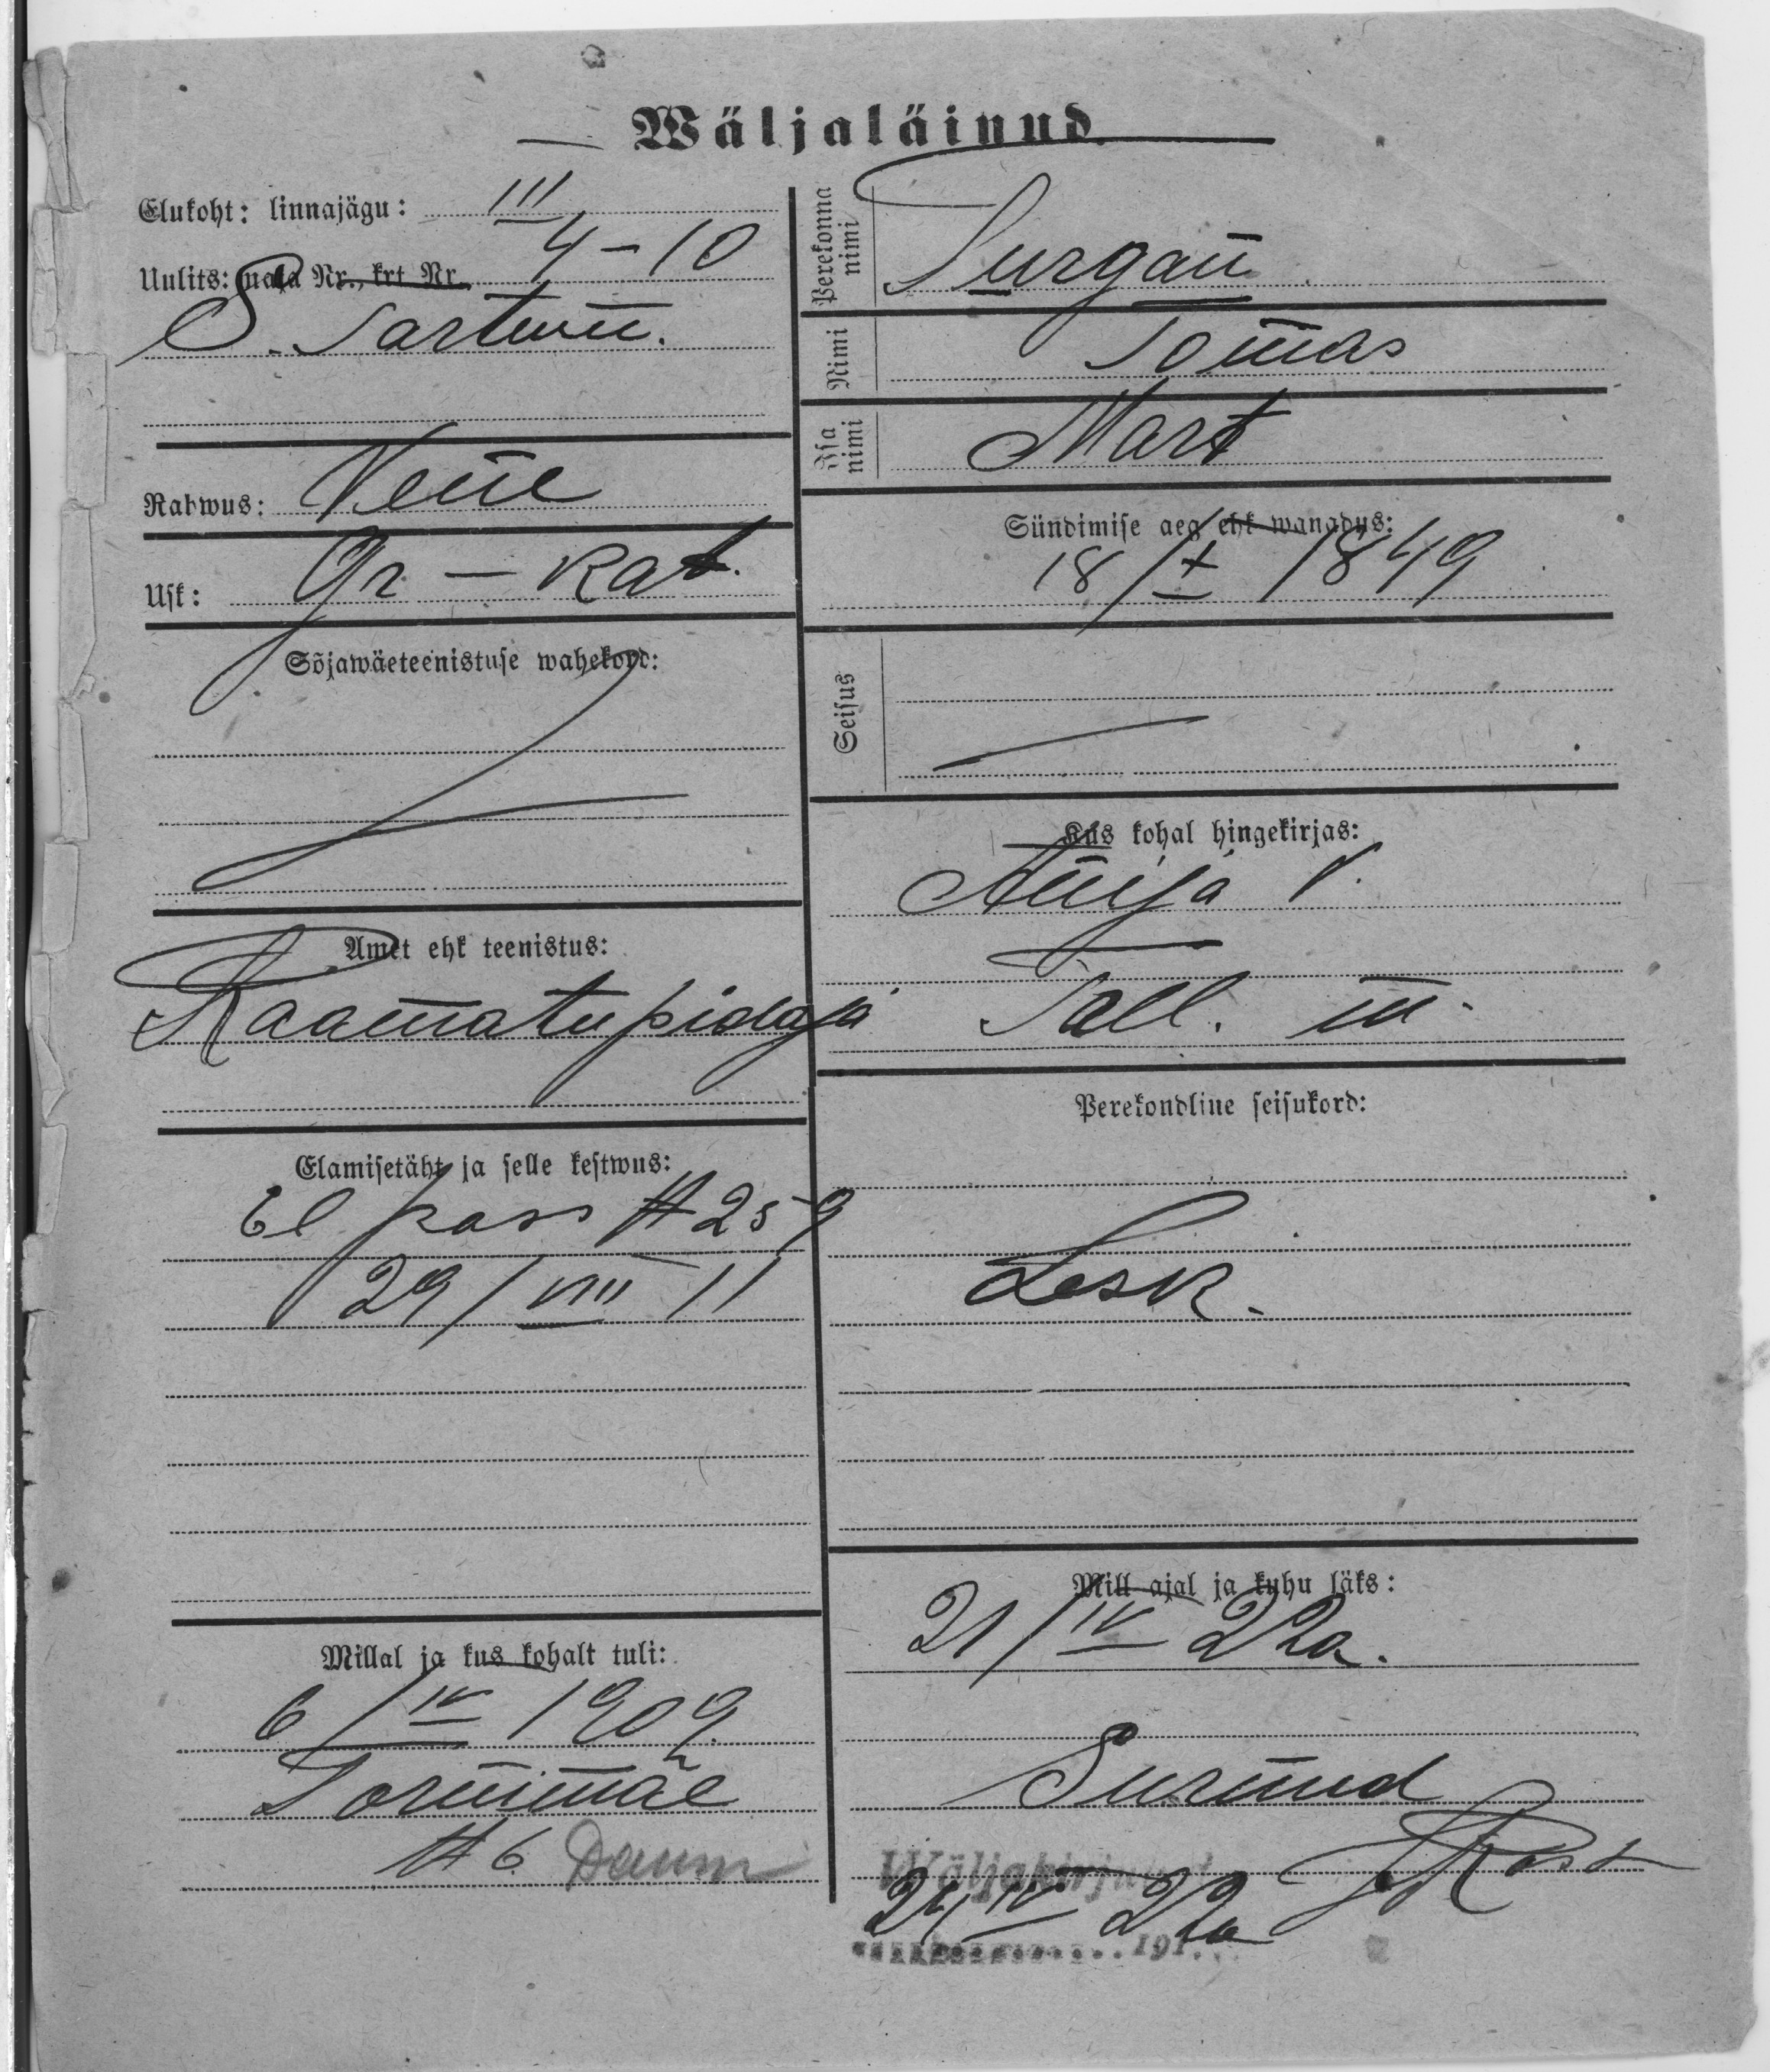 Wäljaläinud.
Elukoht: linnajägu: III
Uulits: maja Nr., krt Nr. 4-10
S. Tartu m.
Rahwus: Vene
Usk: Gr-kat.
Sõjawäeteenistuse wahekord:
Amet ehk teenistus:
Raamatupidaja
Elamisetäht ja selle kestwus:
El pass № 259
29/VIII 11
Millal ja kus kohalt tuli:
6/IV 1909.
Tornimäe
№ 6 Daum
Perekonna nimi
Turgan
Nimi Tomas
Isa nimi Mart
Sündimise aeg ehk wanadus:
18/X 1849
Seisus
Kus kohal hingekirjas:
Anija v.
Tall. m.
Perekondline seisukord:
Lesk.
Mill ajal ja kuhu läks:
21/IV 22a.
Surnud
Wäljakirjutatud
24/IV 22a
191